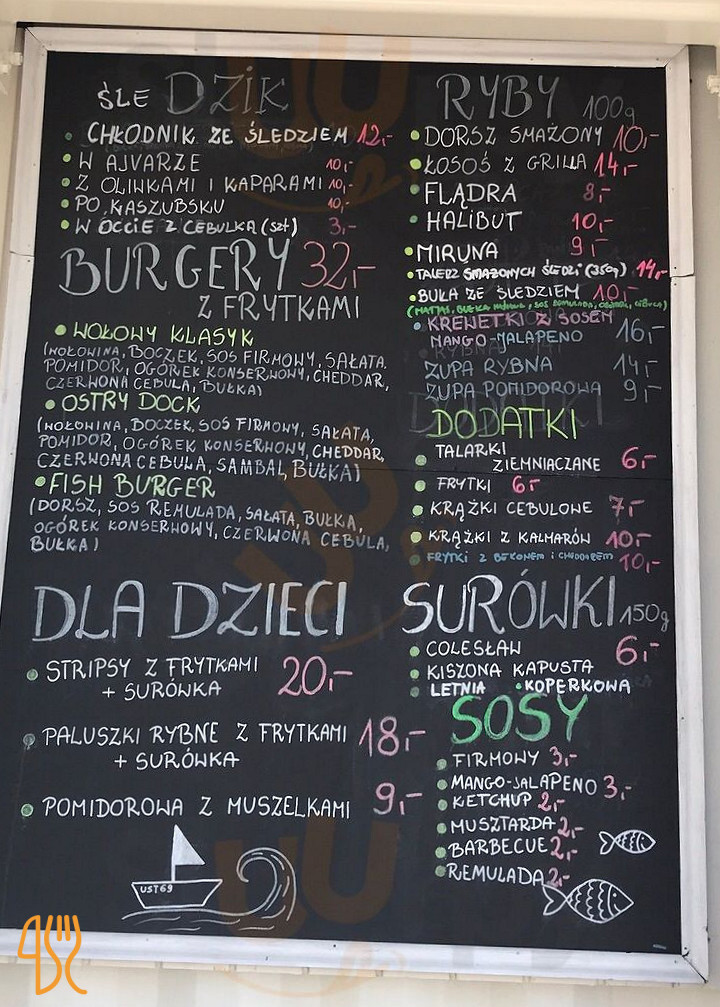 ŚLE DZIK
CHŁODNIK ZE ŚLEDZIEM 12,-
W AJVARZE 10,-
Z OLIWKAMI I KAPARAMI 10,-
PO KASZUBSKU 10,-
W OCCIE Z CEBULKĄ (szt) 3,-
BURGERY 32,-
Z FRYTKAMI
WOŁOWY KLASYK
(WOŁOWINA, BOCZEK, SOS FIRMOWY, SAŁATA,
POMIDOR, OGÓREK KONSERWOWY, CHEDDAR,
CZERWONA CEBULA, BUŁKA)
OSTRY DOCK
(WOŁOWINA, BOCZEK, SOS FIRMOWY, SAŁATA,
POMIDOR, OGÓREK KONSERWOWY, CHEDDAR,
CZERWONA CEBULA, SAMBAL, BUŁKA)
FISH BURGER
(DORSZ, SOS REMULADA, SAŁATA, BUŁKA,
OGÓREK KONSERWOWY, CZERWONA CEBULA,
BUŁKA)
DLA DZIECI
STRIPSY Z FRYTKAMI 20,-
+ SURÓWKA
PALUSZKI RYBNE Z FRYTKAMI 18,-
+ SURÓWKA
POMIDOROWA Z MUSZELKAMI 9,-
UST69
RYBY 100g
DORSZ SMAŻONY 10,-
ŁOSOŚ Z GRILLA 14,-
FLĄDRA 8,-
HALIBUT 10,-
MIRUNA 9,-
TALERZ SMAŻONYCH ŚLEDZI (350g) 14,-
BUŁA ZE ŚLEDZIEM 10,-
KREWETKI Z SOSEM
MANGO-JALAPENO 16,-
ZUPA RYBNA 14,-
ZUPA POMIDOROWA 9,-
DODATKI
TALARKI
ZIEMNIACZANE 6,-
FRYTKI 6,-
KRĄŻKI CEBULOWE 7,-
KRĄŻKI Z KALMARÓW 10,-
FRYTKI Z BEKONEM I CHEDDAREM 10,-
SURÓWKI 150g
COLESŁAW 6,-
KISZONA KAPUSTA
LETNIA KOPERKOWA
SOSY
FIRMOWY 3,-
MANGO-JALAPENO 3,-
KETCHUP 2,-
MUSZTARDA 2,-
BARBECUE 2,-
REMULADA 2,-